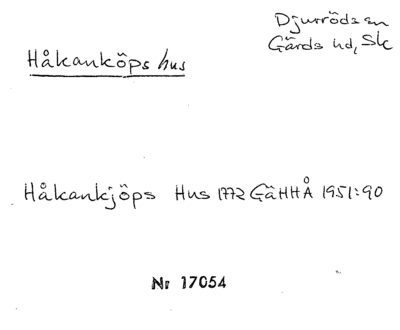 Djurröds sn
Gärds hd, Sk
Håkanköps hus
Håkankjöps Hus 1772 GäHHÅ 1951:90
Nr 17054